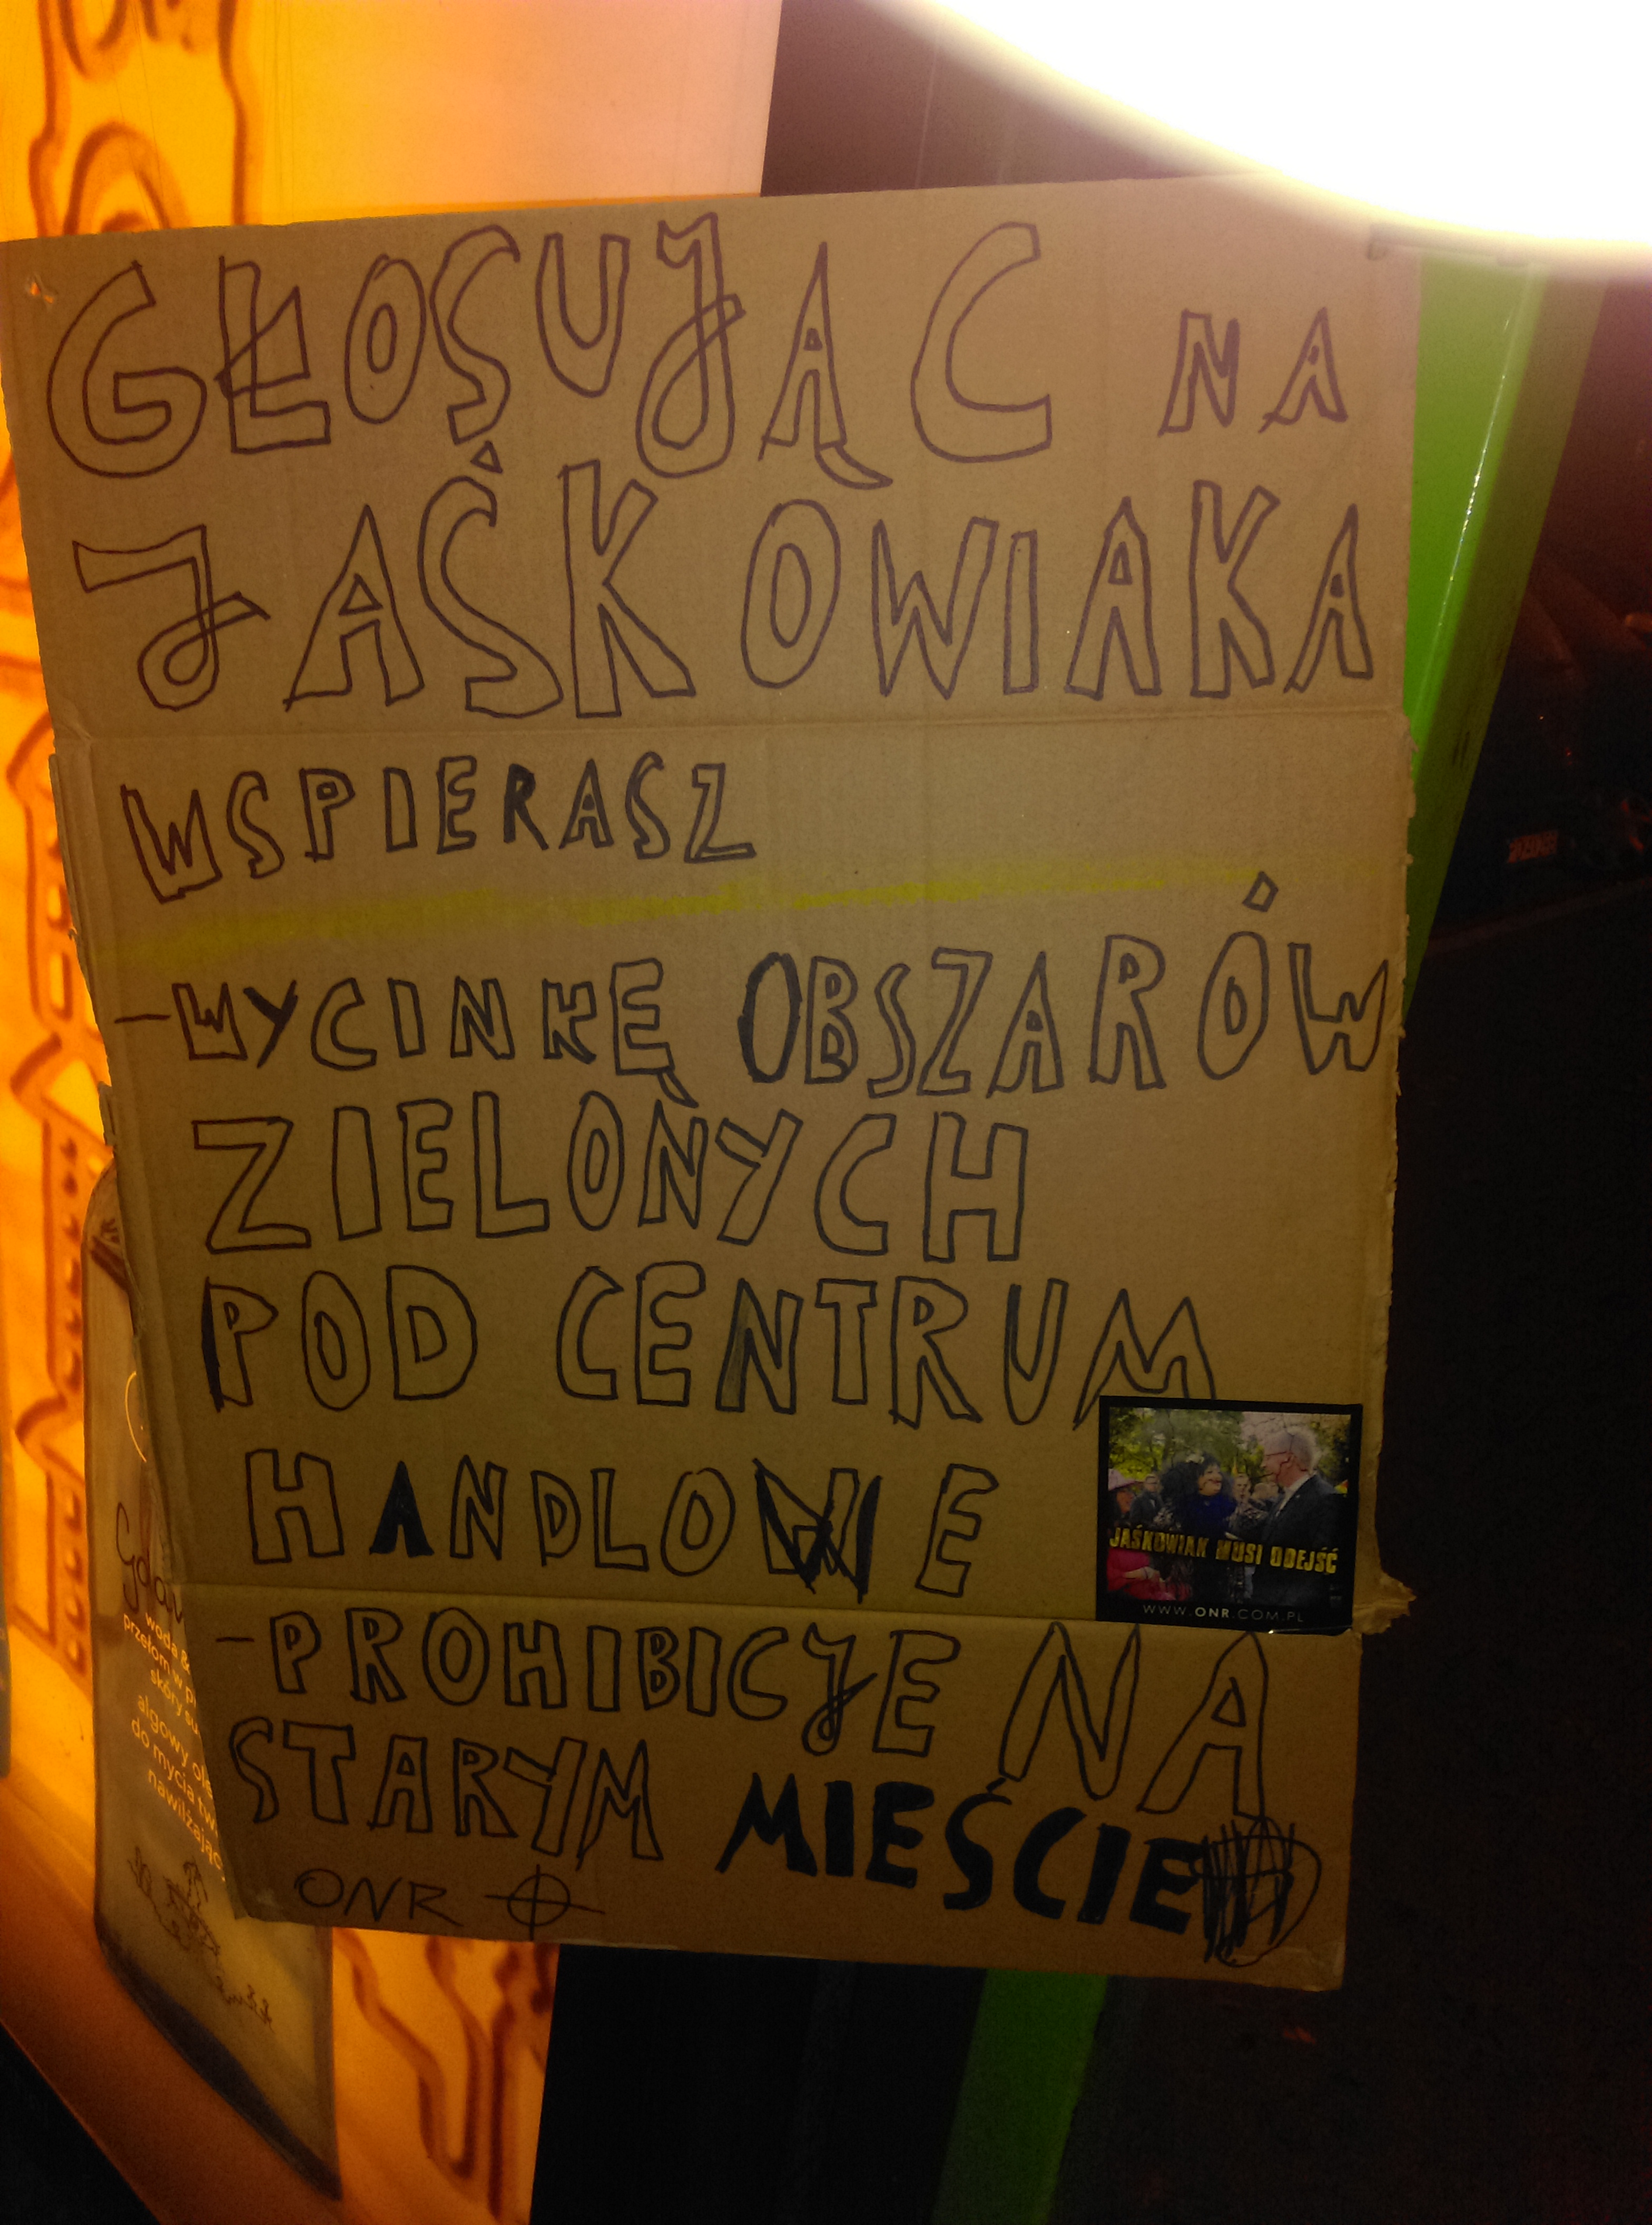 GŁOSUJĄC NA
JAŚKOWIAKA
WSPIERASZ
-WYCINKĘ OBSZARÓW
ZIELONYCH
POD CENTRUM
HANDLOWE
JAŚKOWIAK MUSI ODEJŚĆ
WWW.ONR.COM.PL
-PROHIBICJE NA
STARYM MIEŚCIE
ONR
woda &
przełom w
skóry
algowy
do mycia
nawilżając